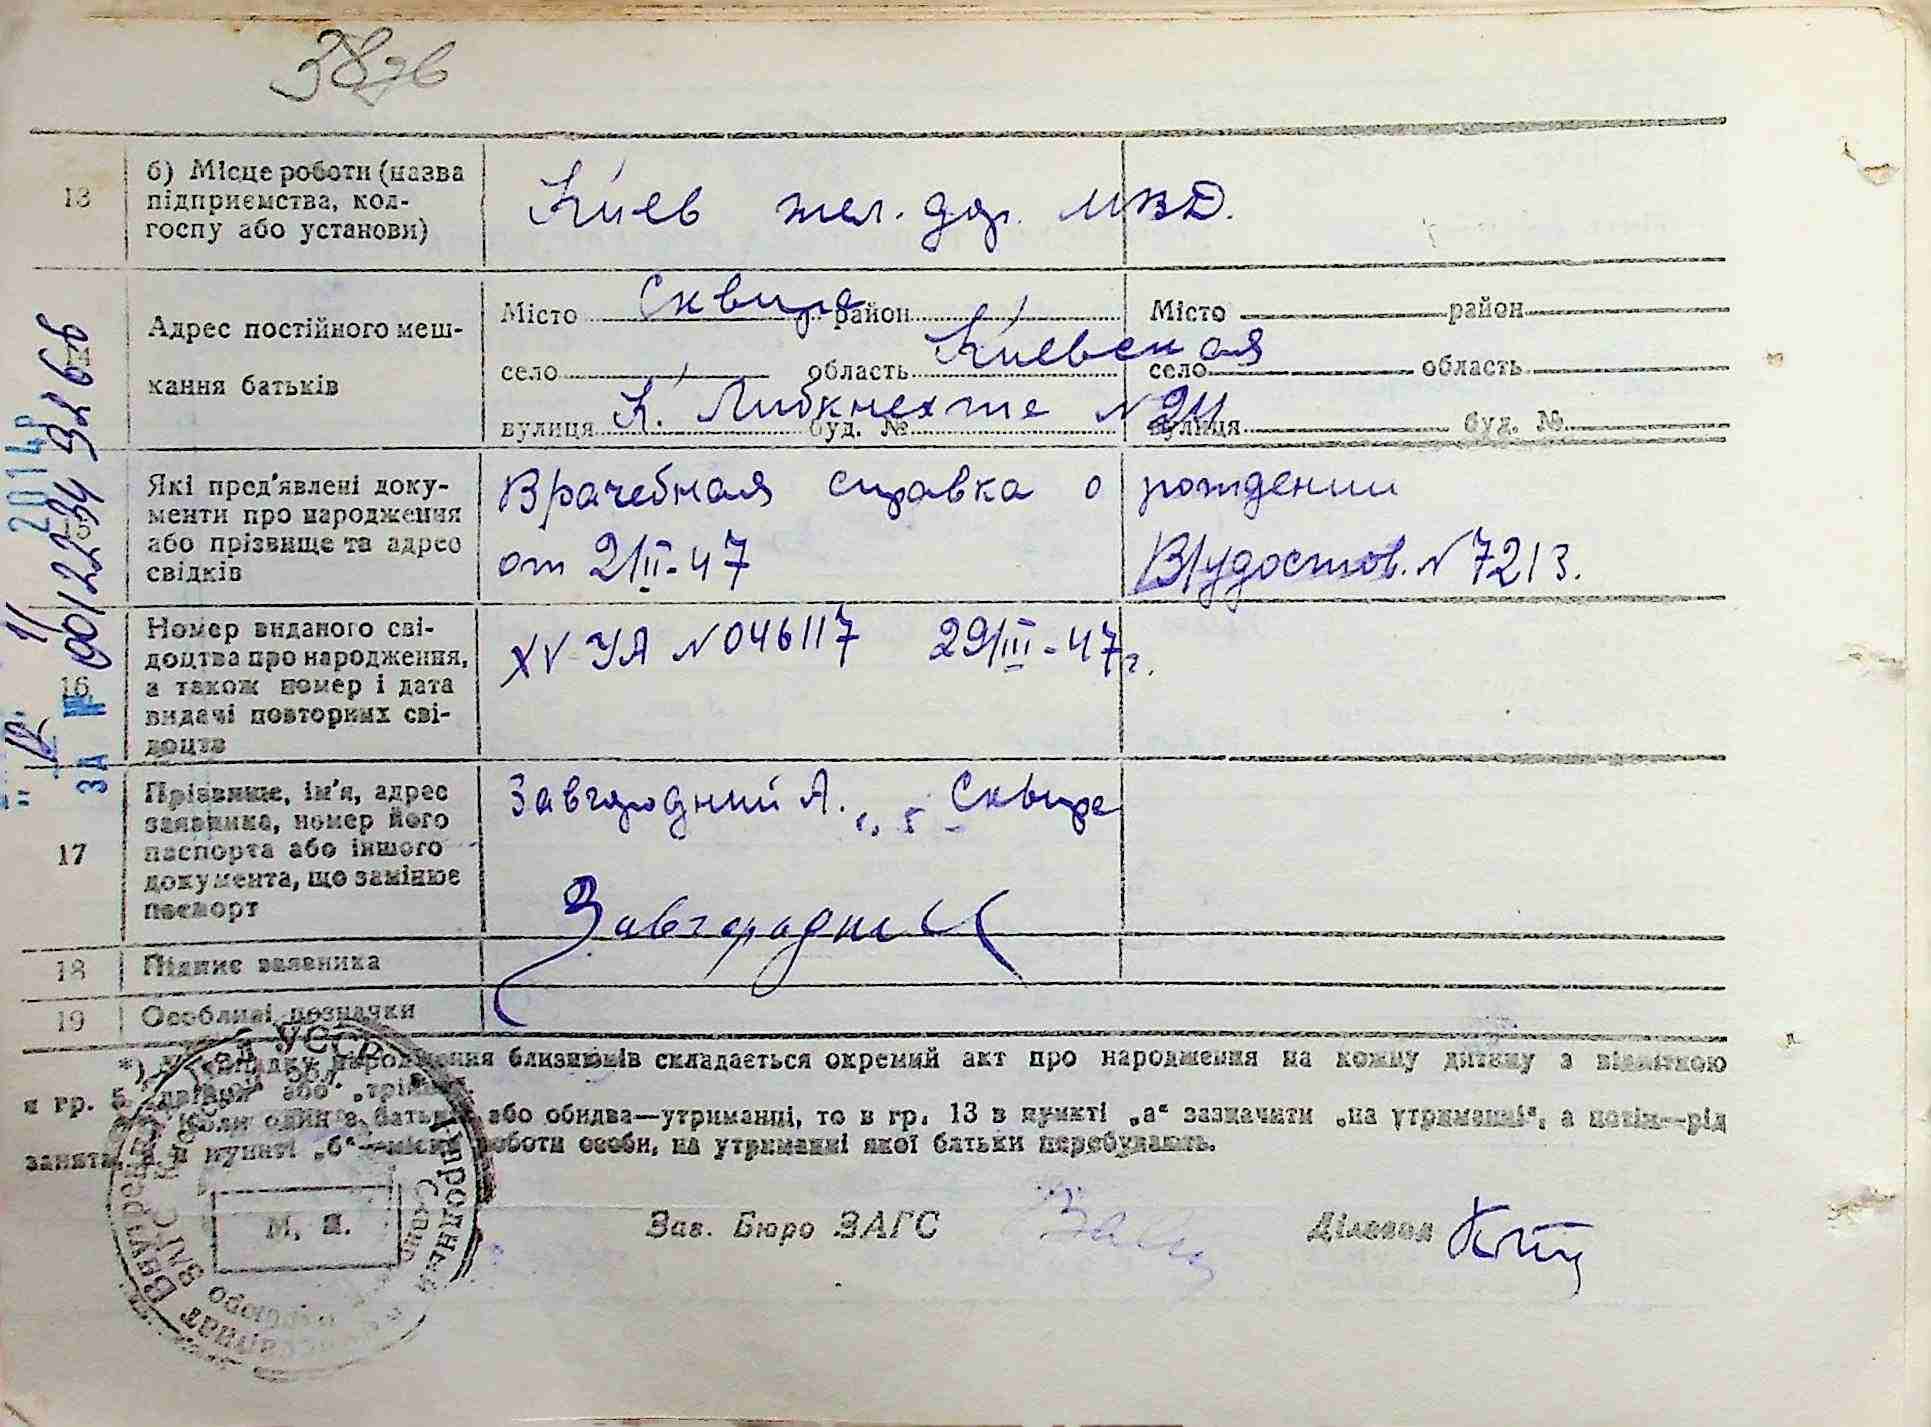 13
б) Місце роботи (назва
підприємства, кол-
госпу або установи)
Киев жел. дор. МВД.
Адрес постійного меш-
кання батьків
Місто Сквира район
село область Киевская
вулиця К. Либкнехта буд. № N 24
Місто район
село область
вулиця буд. №
15
Які пред'явлені доку-
менти про народження
або прізвище та адрес
свідків
Врачебная справка о рождении
от 2/III-47 В/удостов. N 7213.
16
Номер виданого сві-
доцтва про народження,
а також номер і дата
видачі повторних сві-
доцтв
XV УА N 046117 29/III-47 г.
17
Прізвище, ім'я, адрес
заявника, номер його
паспорта або іншого
документа, що замінює
паспорт
Завгородний А. Сквира
Завгородний
18
Підпис заявника
19
Особливі позначки
*) У випадку народження близнюків складається окремий акт про народження на кожну дитину з відміткою
в гр. 5 „двійня" або „трійня".
Коли один з батьків або обидва—утриманці, то в гр. 13 в пункті „а" зазначити „на утриманні", а потім—рід
занять, а в пункті „б"—місце роботи особи, на утриманні якої батьки перебувають.
М. П.
Зав. Бюро ЗАГС
Діловод
11 2014р
ЗА № 00122349266